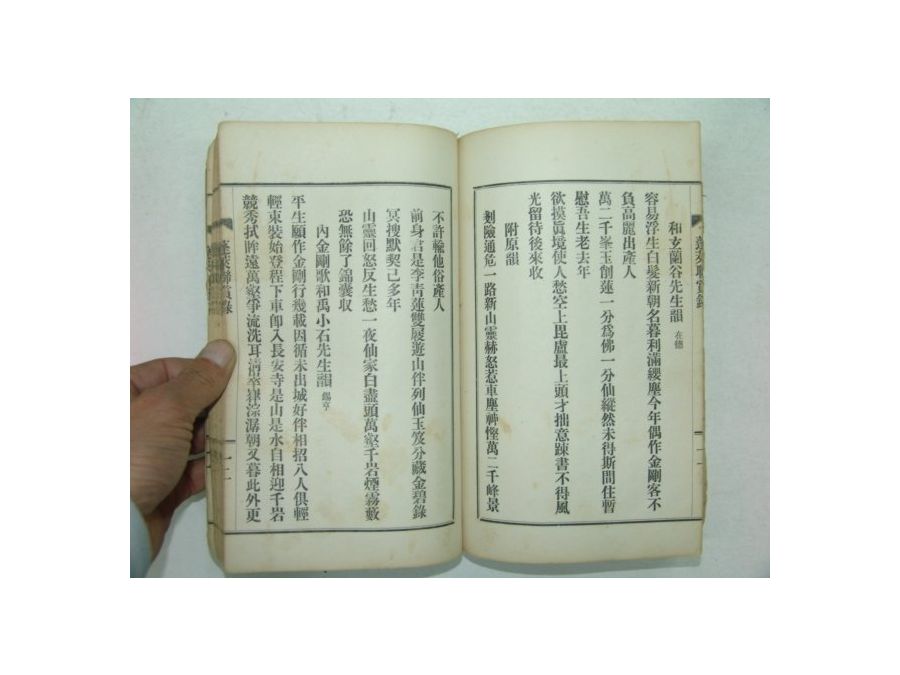 和玄蘭谷先生韻 在德
容易浮生白髮新朝名暮利滿纓塵今年偶作金剛客不
負高麗出產人
萬二千峯玉創蓮一分爲佛一分仙縱然未得斯間住暫
慰吾生老去年
欲摸眞境使人愁空上毘盧最上頭才拙意踈書不得風
光留待後來收
附原韻
剗險通危一路新山靈赫怒惹車塵神慳萬二千峰景
不許輸他俗產人
前身君是李靑蓮雙屐遊山伴列仙玉笈分藏金碧錄
冥搜默契已多年
山靈回怒反生愁一夜仙家白盡頭萬壑千岩煙霧藪
恐無餘了錦囊収
內金剛歌和禹小石先生韻 錫亨
平生願作金剛行幾載因循未出城好伴相招八人俱輕
輕束裝始登程下車卽入長安寺是山是水自相迎千岩
競秀拭眸遠萬壑爭流洗耳淸崒嵂淙潺朝又暮此外更
蓬萊聯賞錄